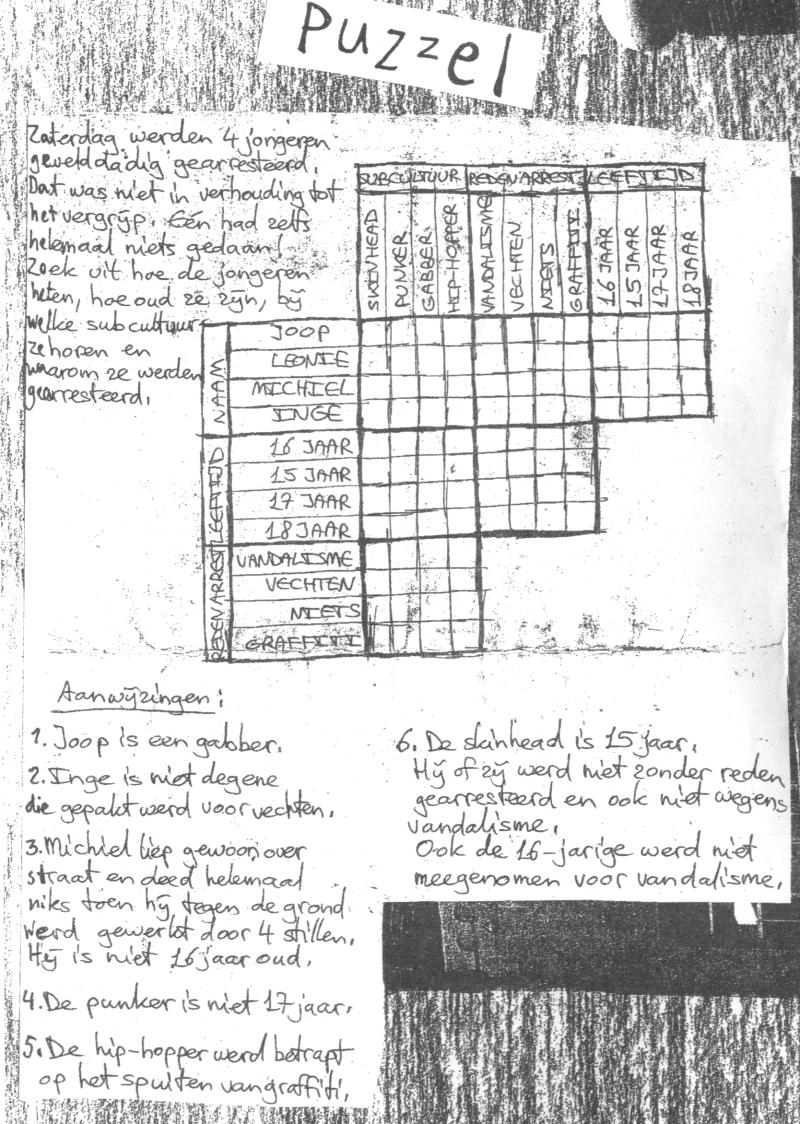 Puzzel
Zaterdag werden 4 jongeren
gewelddadig gearresteerd.
Dat was niet in verhouding tot
het vergrijp. Eén had zelfs
helemaal niets gedaan!
Zoek uit hoe de jongeren
heten, hoe oud ze zijn, bij
welke subcultuur
ze horen en
waarom ze werden
gearresteerd.
SUBCULTUUR REDEN ARREST LEEFTIJD
SKINHEAD
PUNKER
GABBER
HIP-HOPPER
VANDALISME
VECHTEN
NIETS
GRAFFITI
16 JAAR
15 JAAR
17 JAAR
18 JAAR
NAAM
JOOP
LEONIE
MICHIEL
INGE
LEEFTIJD
16 JAAR
15 JAAR
17 JAAR
18 JAAR
REDEN ARREST
VANDALISME
VECHTEN
NIETS
GRAFFITI
Aanwijzingen:
1. Joop is een gabber.
2. Inge is niet degene
die gepakt werd voor vechten.
3. Michiel liep gewoon over
straat en deed helemaal
niks toen hij tegen de grond
werd gewerkt door 4 stillen.
Hij is niet 16 jaar oud.
4. De punker is niet 17 jaar.
5. De hip-hopper werd betrapt
op het spuiten van graffiti.
6. De skinhead is 15 jaar.
Hij of zij werd niet zonder reden
gearresteerd en ook niet wegens
vandalisme.
Ook de 16-jarige werd niet
meegenomen voor vandalisme.